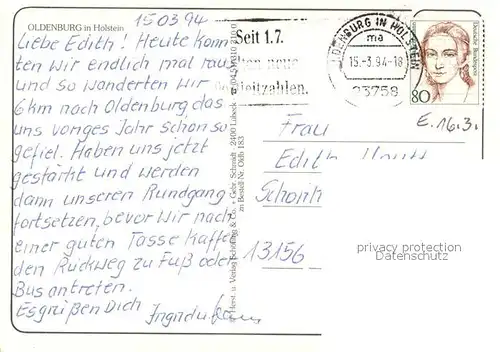 OLDENBURG in Holstein
15.03.94
Liebe Edith! Heute konn-
ten wir endlich mal raus
und so wanderten wir
6 km nach Oldenburg das
uns voriges Jahr schon so
gefiel. Haben uns jetzt
gestärkt und werden
dann unseren Rundgang
fortsetzen, bevor wir nach
einer guten Tasse Kaffee
den Rückweg zu Fuß oder
Bus antreten.
Es grüßen Dich
Seit 1.7.
neue
leitzahlen.
OLDENBURG IN HOLSTEIN
ma
15.-3.94-18
23758
80
Deutsche Bundespost
E. 16.3.
Frau
Edith
Schönh
13156
privacy protection
Datenschutz
Verlag Schöning & Co. + Gebr. Schmidt · 2400 Lübeck
zu Bestell-Nr. Oldb 183